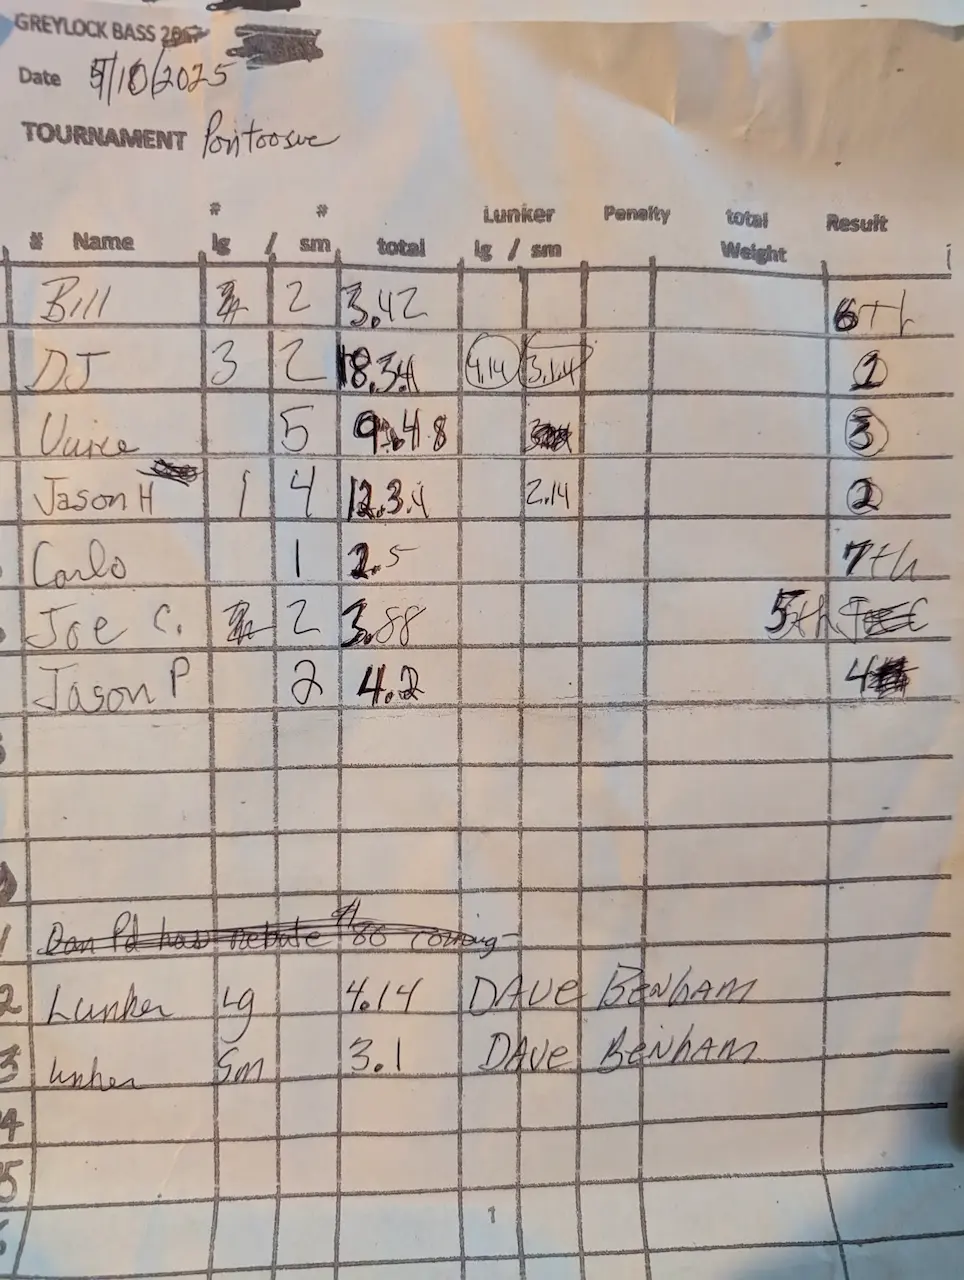 GREYLOCK BASS
Date 5/10/2025
TOURNAMENT Pontoosuc
# # Lunker Penalty total Result
# Name lg / sm total lg / sm Weight
Bill 2 3.42 6th
DJ 3 2 18.34 4.14 3.14 1
5 9.48 3
Jason H 1 4 12.34 2.14 2
Carlo 1 2.5 7th
Joe C. 2 3.88 5th
Jason P 2 4.2 4
Dan Pd has rebate $80 coming
2 Lunker Lg 4.14 DAVE BENHAM
3 unker Sm 3.1 DAVE BENHAM
4
5
1